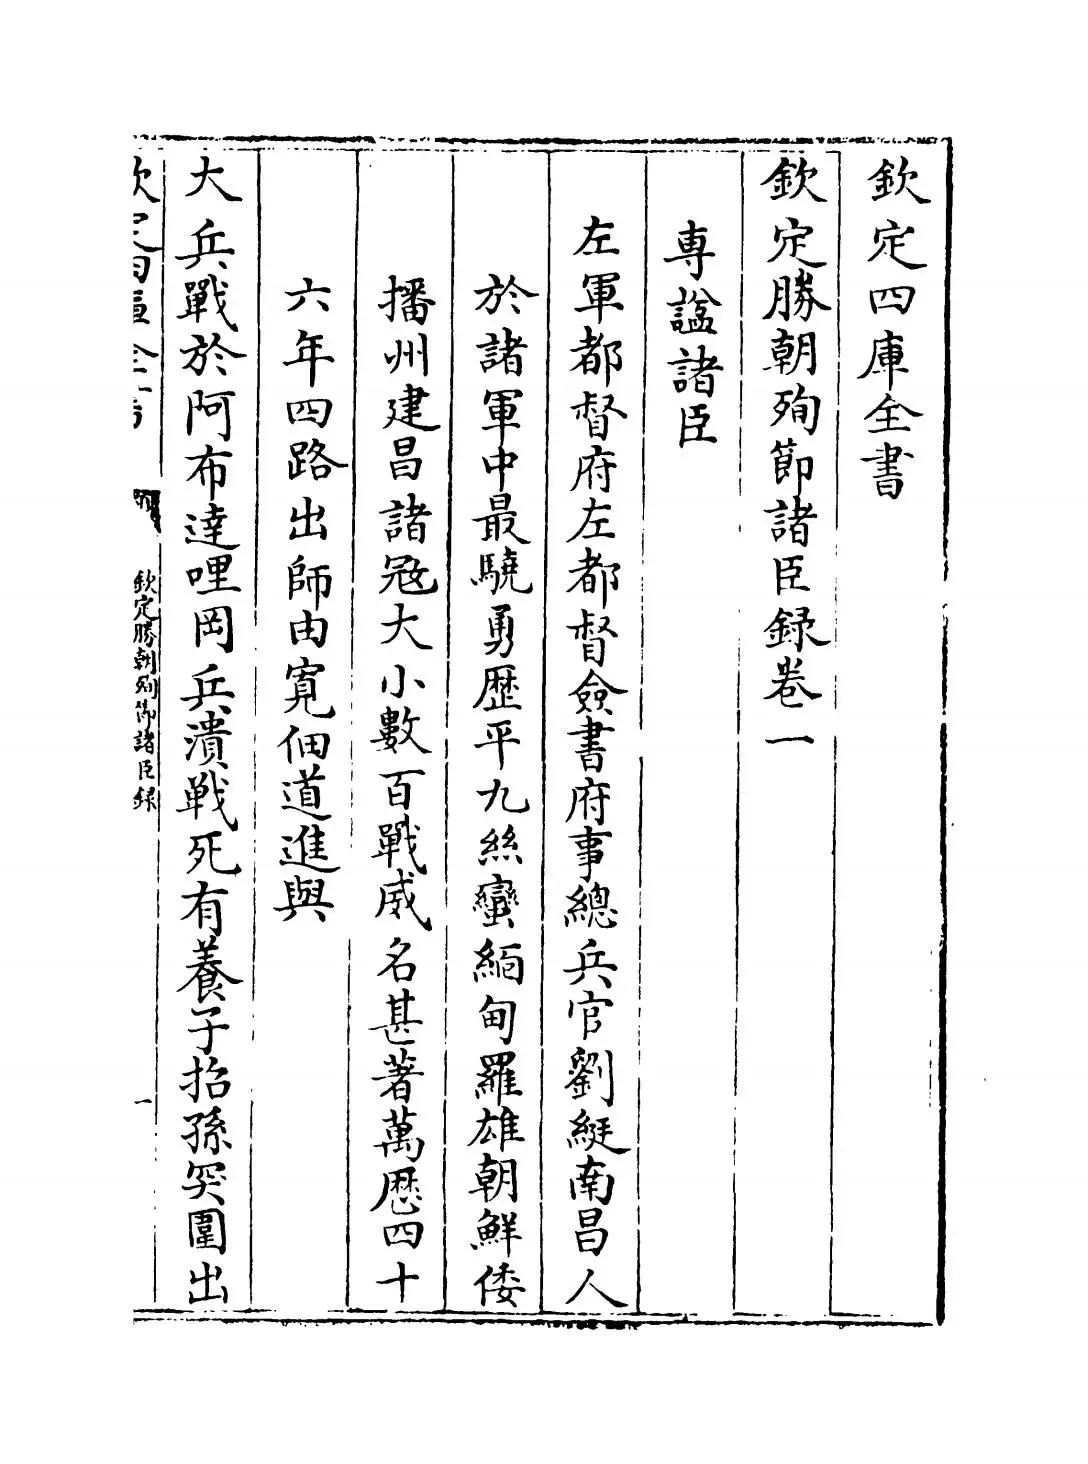 欽定四庫全書
欽定勝朝殉節諸臣録卷一
專諡諸臣
左軍都督府左都督僉書府事總兵官劉綎南昌人
於諸軍中最驍勇歴平九絲蠻緬甸羅雄朝鮮倭
播州建昌諸冦大小數百戰威名甚著萬厯四十
六年四路出師由寛佃道進與
大兵戰於阿布達哩岡兵潰戰死有養子招孫突圍出
欽定四庫全書
欽定勝朝殉節諸臣録
一